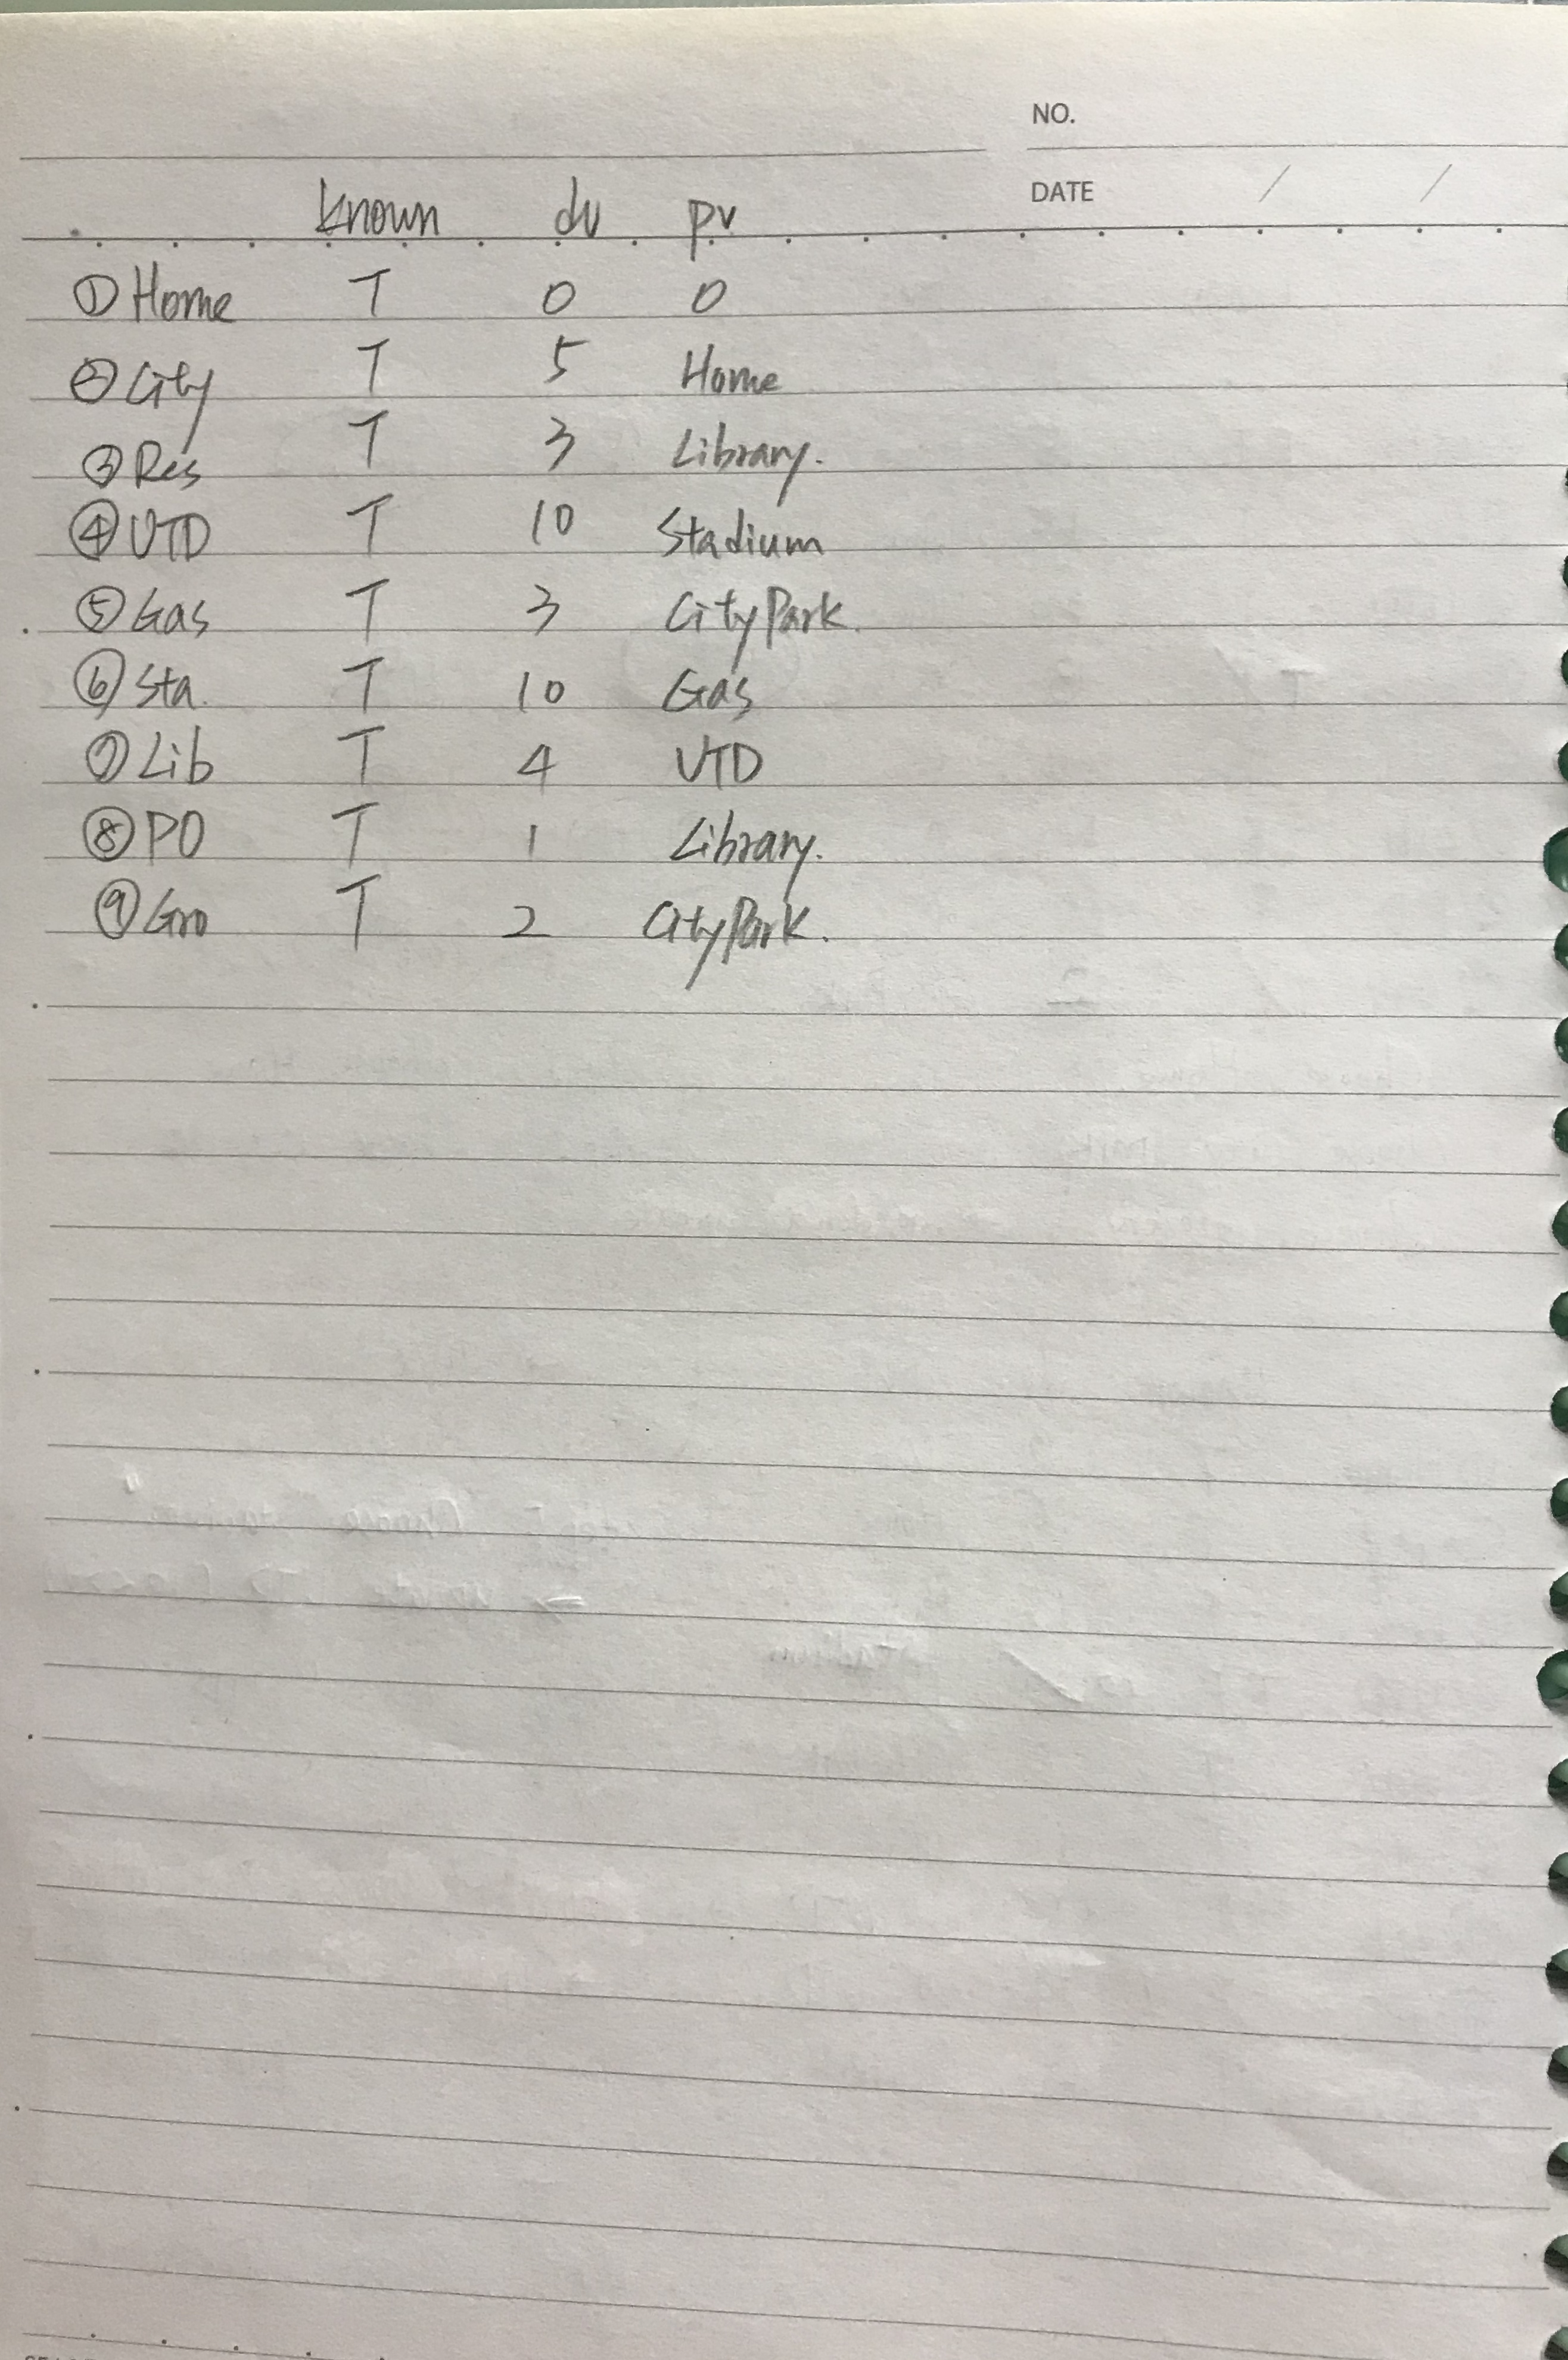 NO.
DATE / /
known dv pv
① Home T 0 0
② City T 5 Home
③ Res T 3 Library.
④ UTD T 10 Stadium
⑤ Gas T 3 CityPark.
⑥ Sta. T 10 Gas
⑦ Lib T 4 UTD
⑧ PO T 1 Library.
⑨ Gro T 2 CityPark.